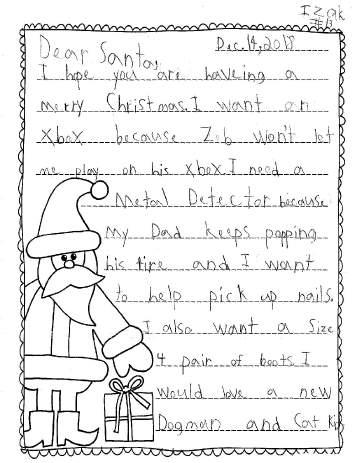 Izak
Dec. 14, 2018
Dear Santa,
I hope you are haveing a
merry Christmas. I want an
Xbox because Zeb won't let
me play on his xbox. I need a
Metal Detector because
my Dad keeps popping
his tire and I want
to help pick up nails.
I also want a size
4 pair of boots. I
would love a new
Dogman and Cat Kid